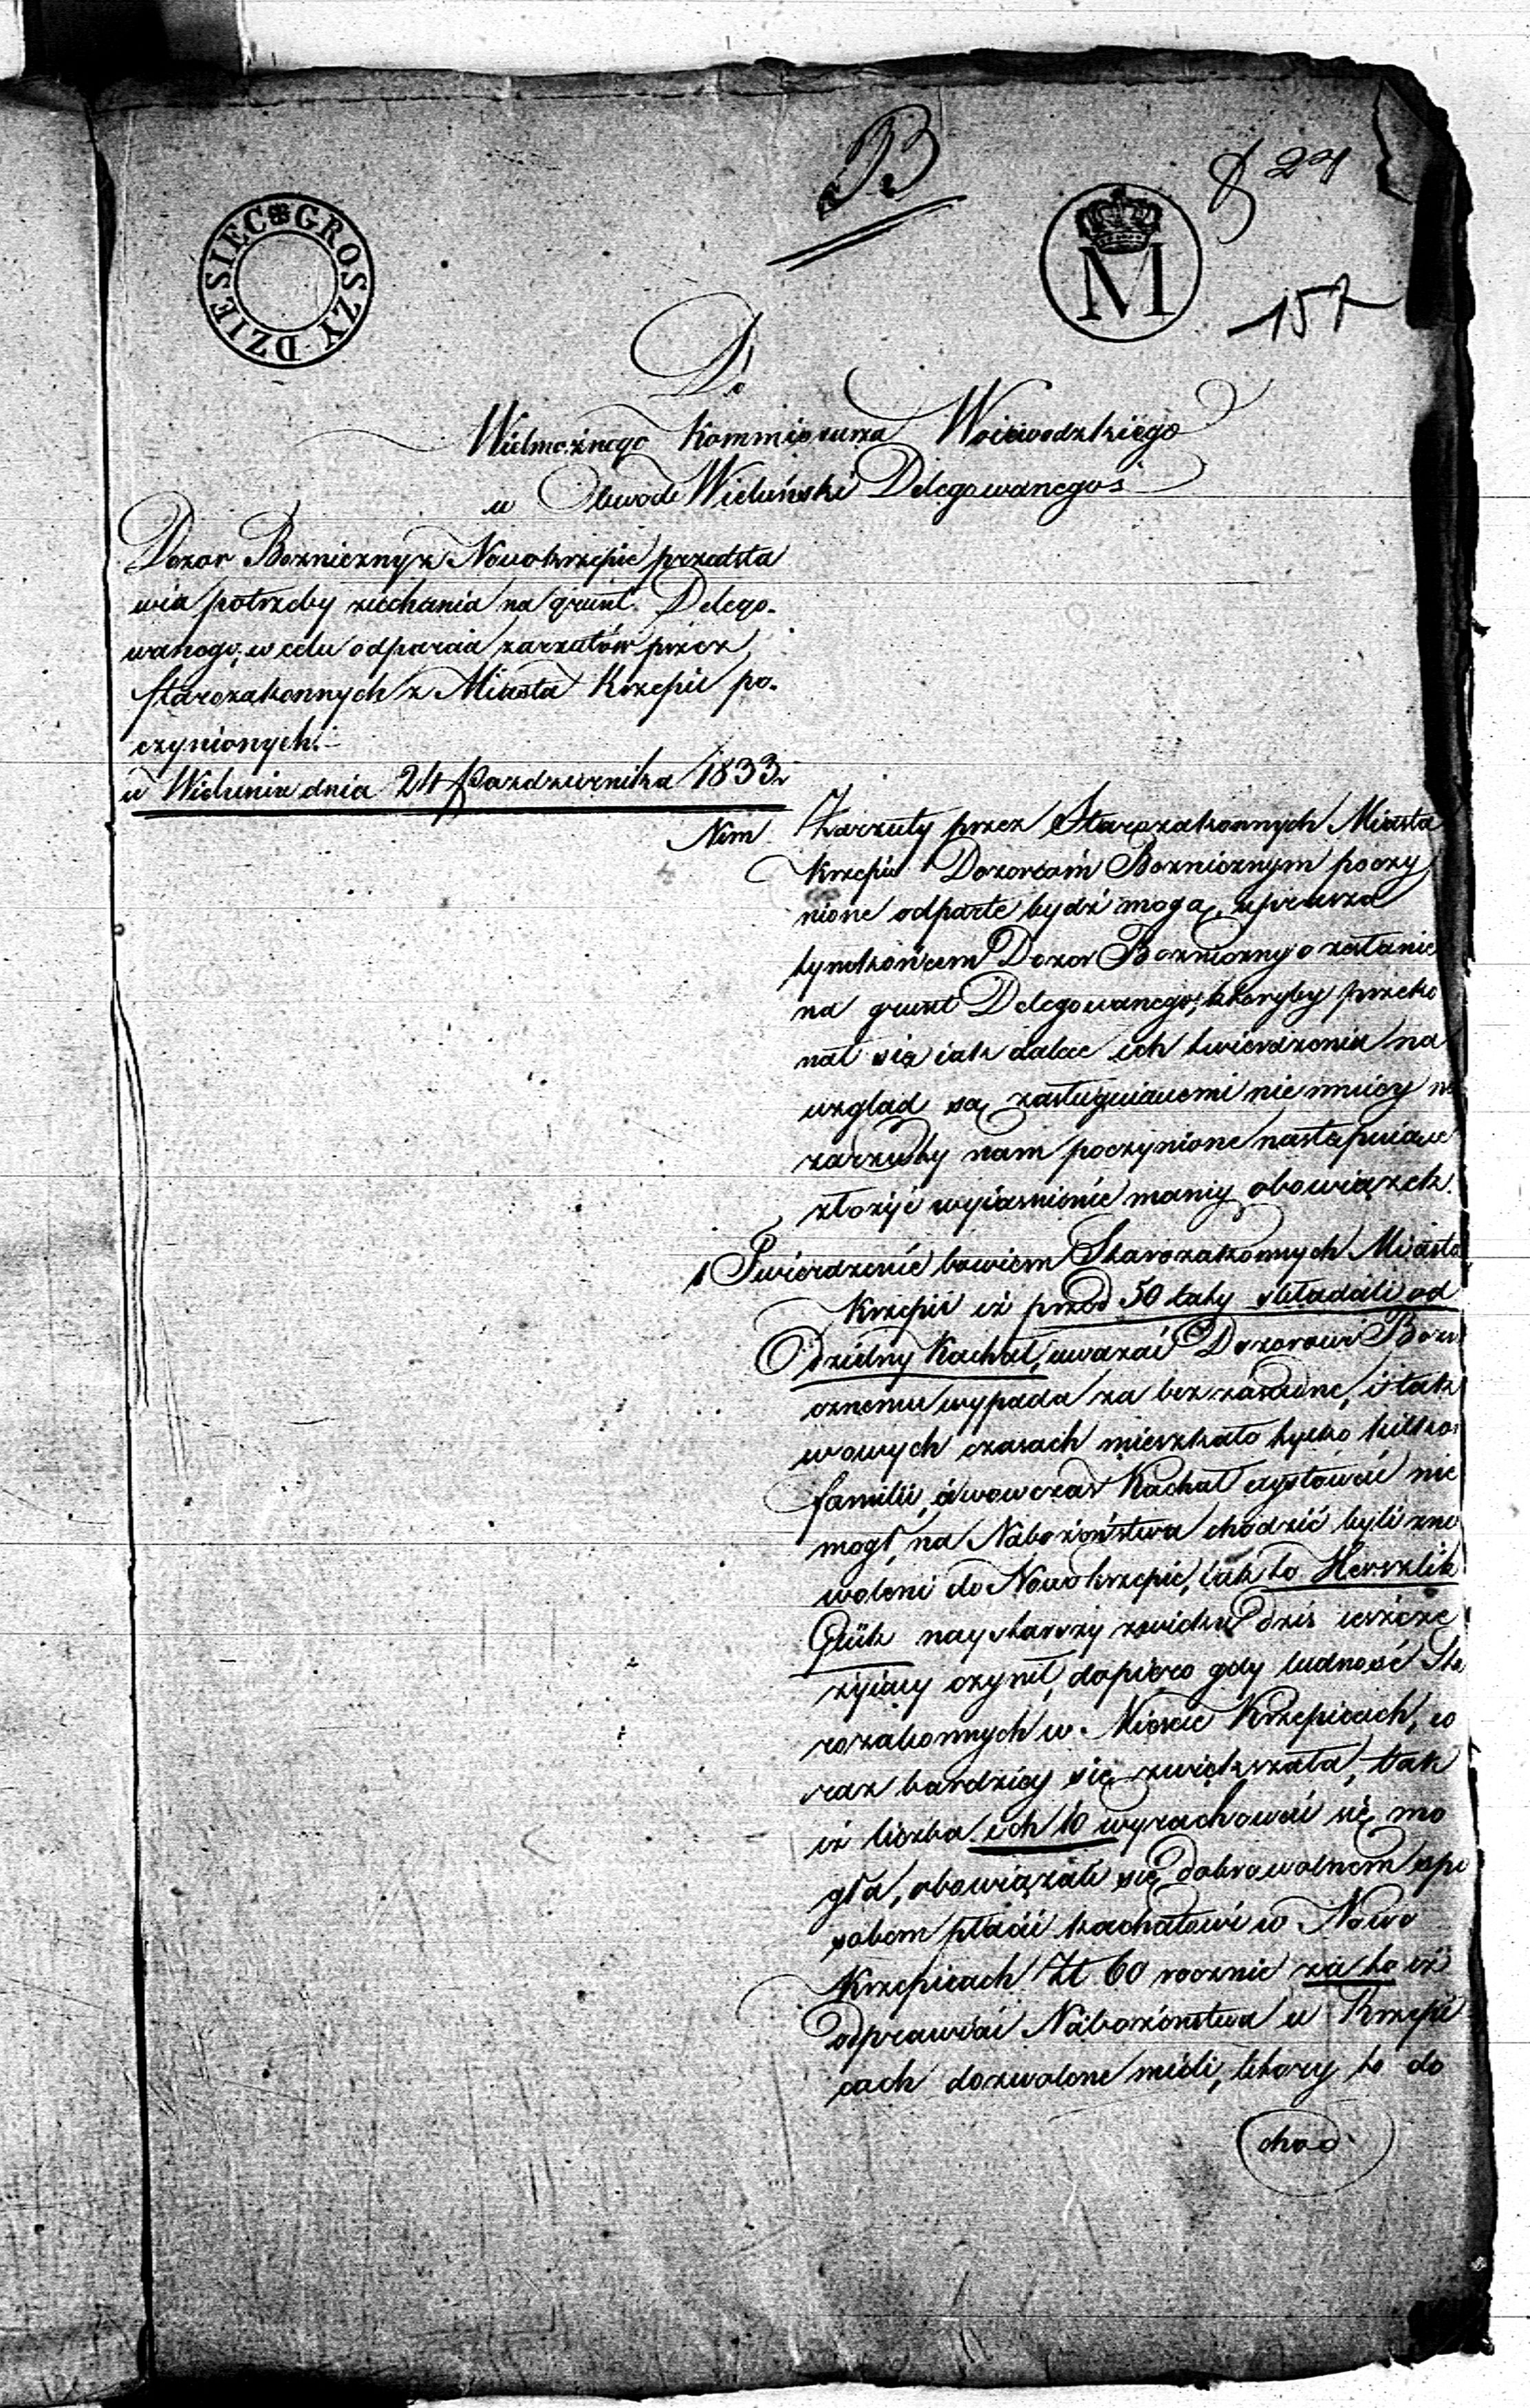 B
8 24
DZIESIEC GROSZY
M
157
Do
Wielmożnego Kommissarza Woiewodzkiego
w Obwodzie Wieluński Delegowanego
Dozor Bozniczny z Nowokrzepic przedsta
wia potrzeby ziechania na grunt Delego-
wanego, w celu odparcia zarzutów przez
Starozakonnych z Miasta Krzepic po-
czynionych.
w Wieluniu dnia 24 Pazdziernika 1833 r
Nim Zarzuty przez Starozakonnych Miasta
Krzepic Dozorcom Boznicznym poczy
nione odparte bydź mogą, uprasza
tymkońcem Dozor Bozniczny o zesłanie
na grunt Delegowanego, ktoryby przeko
nał się iak dalece ich twierdzenia na
wzgląd są zasługuiącemi nie mniey na
zarzuty nam poczynione następuiące
złożyć wyiasnienie mamy obowiązek.
1 Twierdzenie bowiem Starozakonnych Miasta
Krzepic iż przed 50 laty składali od
Dzielny Kachał, uważać Dozorowi Bozni
cznemu wypada za bezzasadne, i tak
wowych czasach mieszkało tylko kilka
familii, á wowczas Kachał exystować nie
mogł, na Nabożeństwa chodzić byli znie
woleni do Nowokrzepic, iak to Herszlik
Glük naystarszy zwieku dziś ieszcze
żyiący czynił, dopiero gdy ludność Sta
rozakonnych w Mieście Krzepicach, co
raz bardziey się zwiększała, tak
iż liczba ich 10 wyrachować się mo
gła, obowiązali się dobrowolnem spo
sobem płacić kachałowi w Nowo
Krzepicach Zł 60 rocznie za to iż
odprawiać Nabożeństwa w Krzepi
cach dozwolone mieli, ktory to do
chod